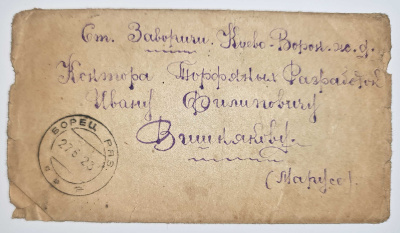 Ст. Заворичи, Киево-Ворон. ж. д.
Контора Торфяных Разработок
Ивану Филиповичу
Вишнякову.
(Маруся).
БОРЕЦ РЯЗ